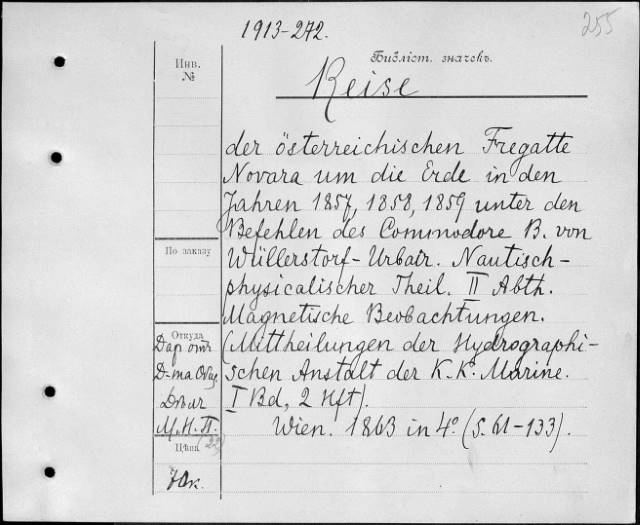 1913-272.
255
Инв.
№
Библіот. значекъ.
Reise
der österreichischen Fregatte
Novara um die Erde in den
Jahren 1857, 1858, 1859 unter den
Befehlen des Commodore B. von
По заказу
Wüllerstorf-Urbair. Nautisch-
physicalischer Theil. II Abth.
Magnetische Beobachtungen.
Откуда
Даръ отъ
(Mittheilungen der Hydrographi-
schen Anstalt der K. K. Marine.
Д-та Общ.
I Bd, 2 Hft).
Дѣлъ
М. Н. П.
Wien. 1863 in 4º. (S. 61-133).
(22)
Цѣна